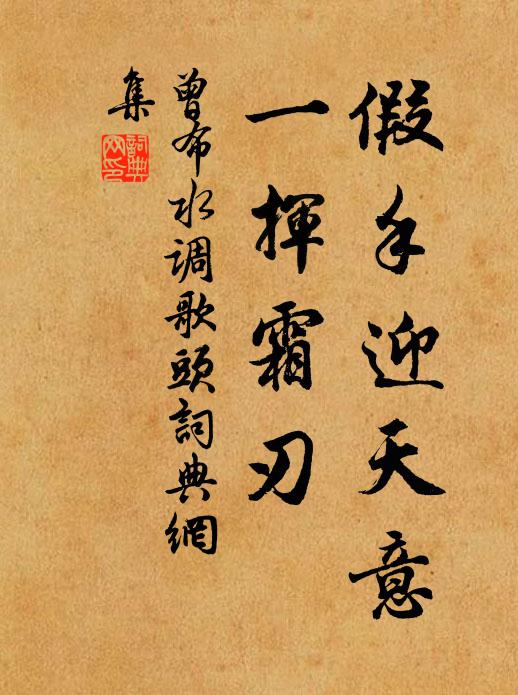 假手迎天意
一揮霜刃
曾布水调歌頭詞典網
集
詞典
网印